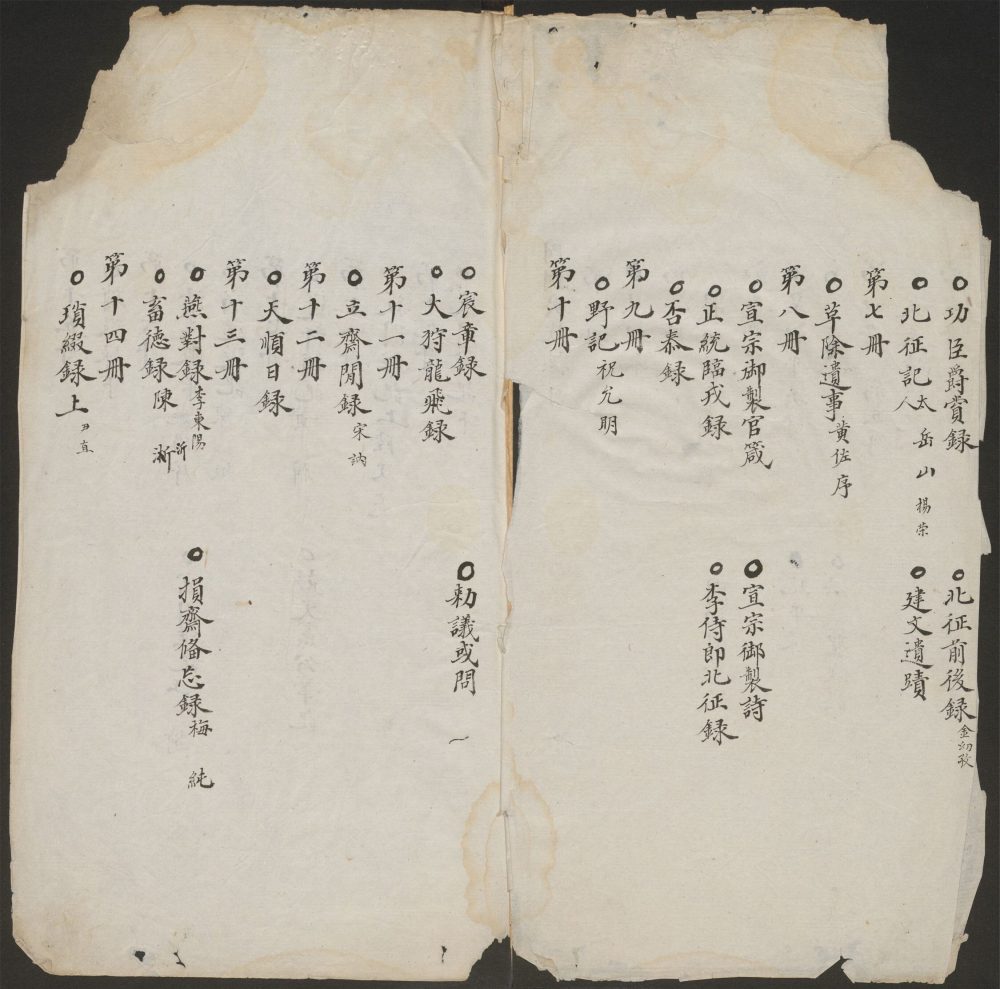 ○功臣爵賞録 ○北征前後録 金幼孜
○北征記 太岳山人 楊荣 ○建文遺蹟
第七冊
○草除遺事 黄佐序
第八冊
○宣宗御製官箴 ○宣宗御製詩
○正統臨戎録 ○李侍郎北征録
○否泰録
第九冊
○野記 祝允明
第十冊
○宸章録 ○勑議或問
○大狩龍飛録
第十一冊
○立齋閒録 宋訥
第十二冊
○天順日録
第十三冊
○燕對録 李東陽 ○損齋俻忘録 梅純
○畜德録 陳沂
第十四冊
○瑣綴録上 尹直